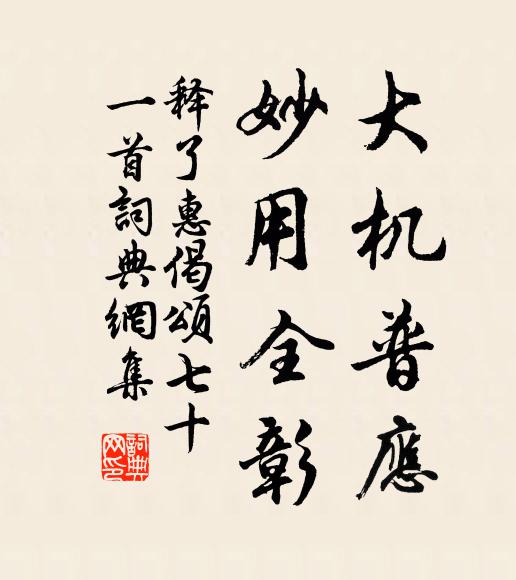 大机普應
妙用全彰
释了惠偈頌七十
一首詞典網集
詞典網印